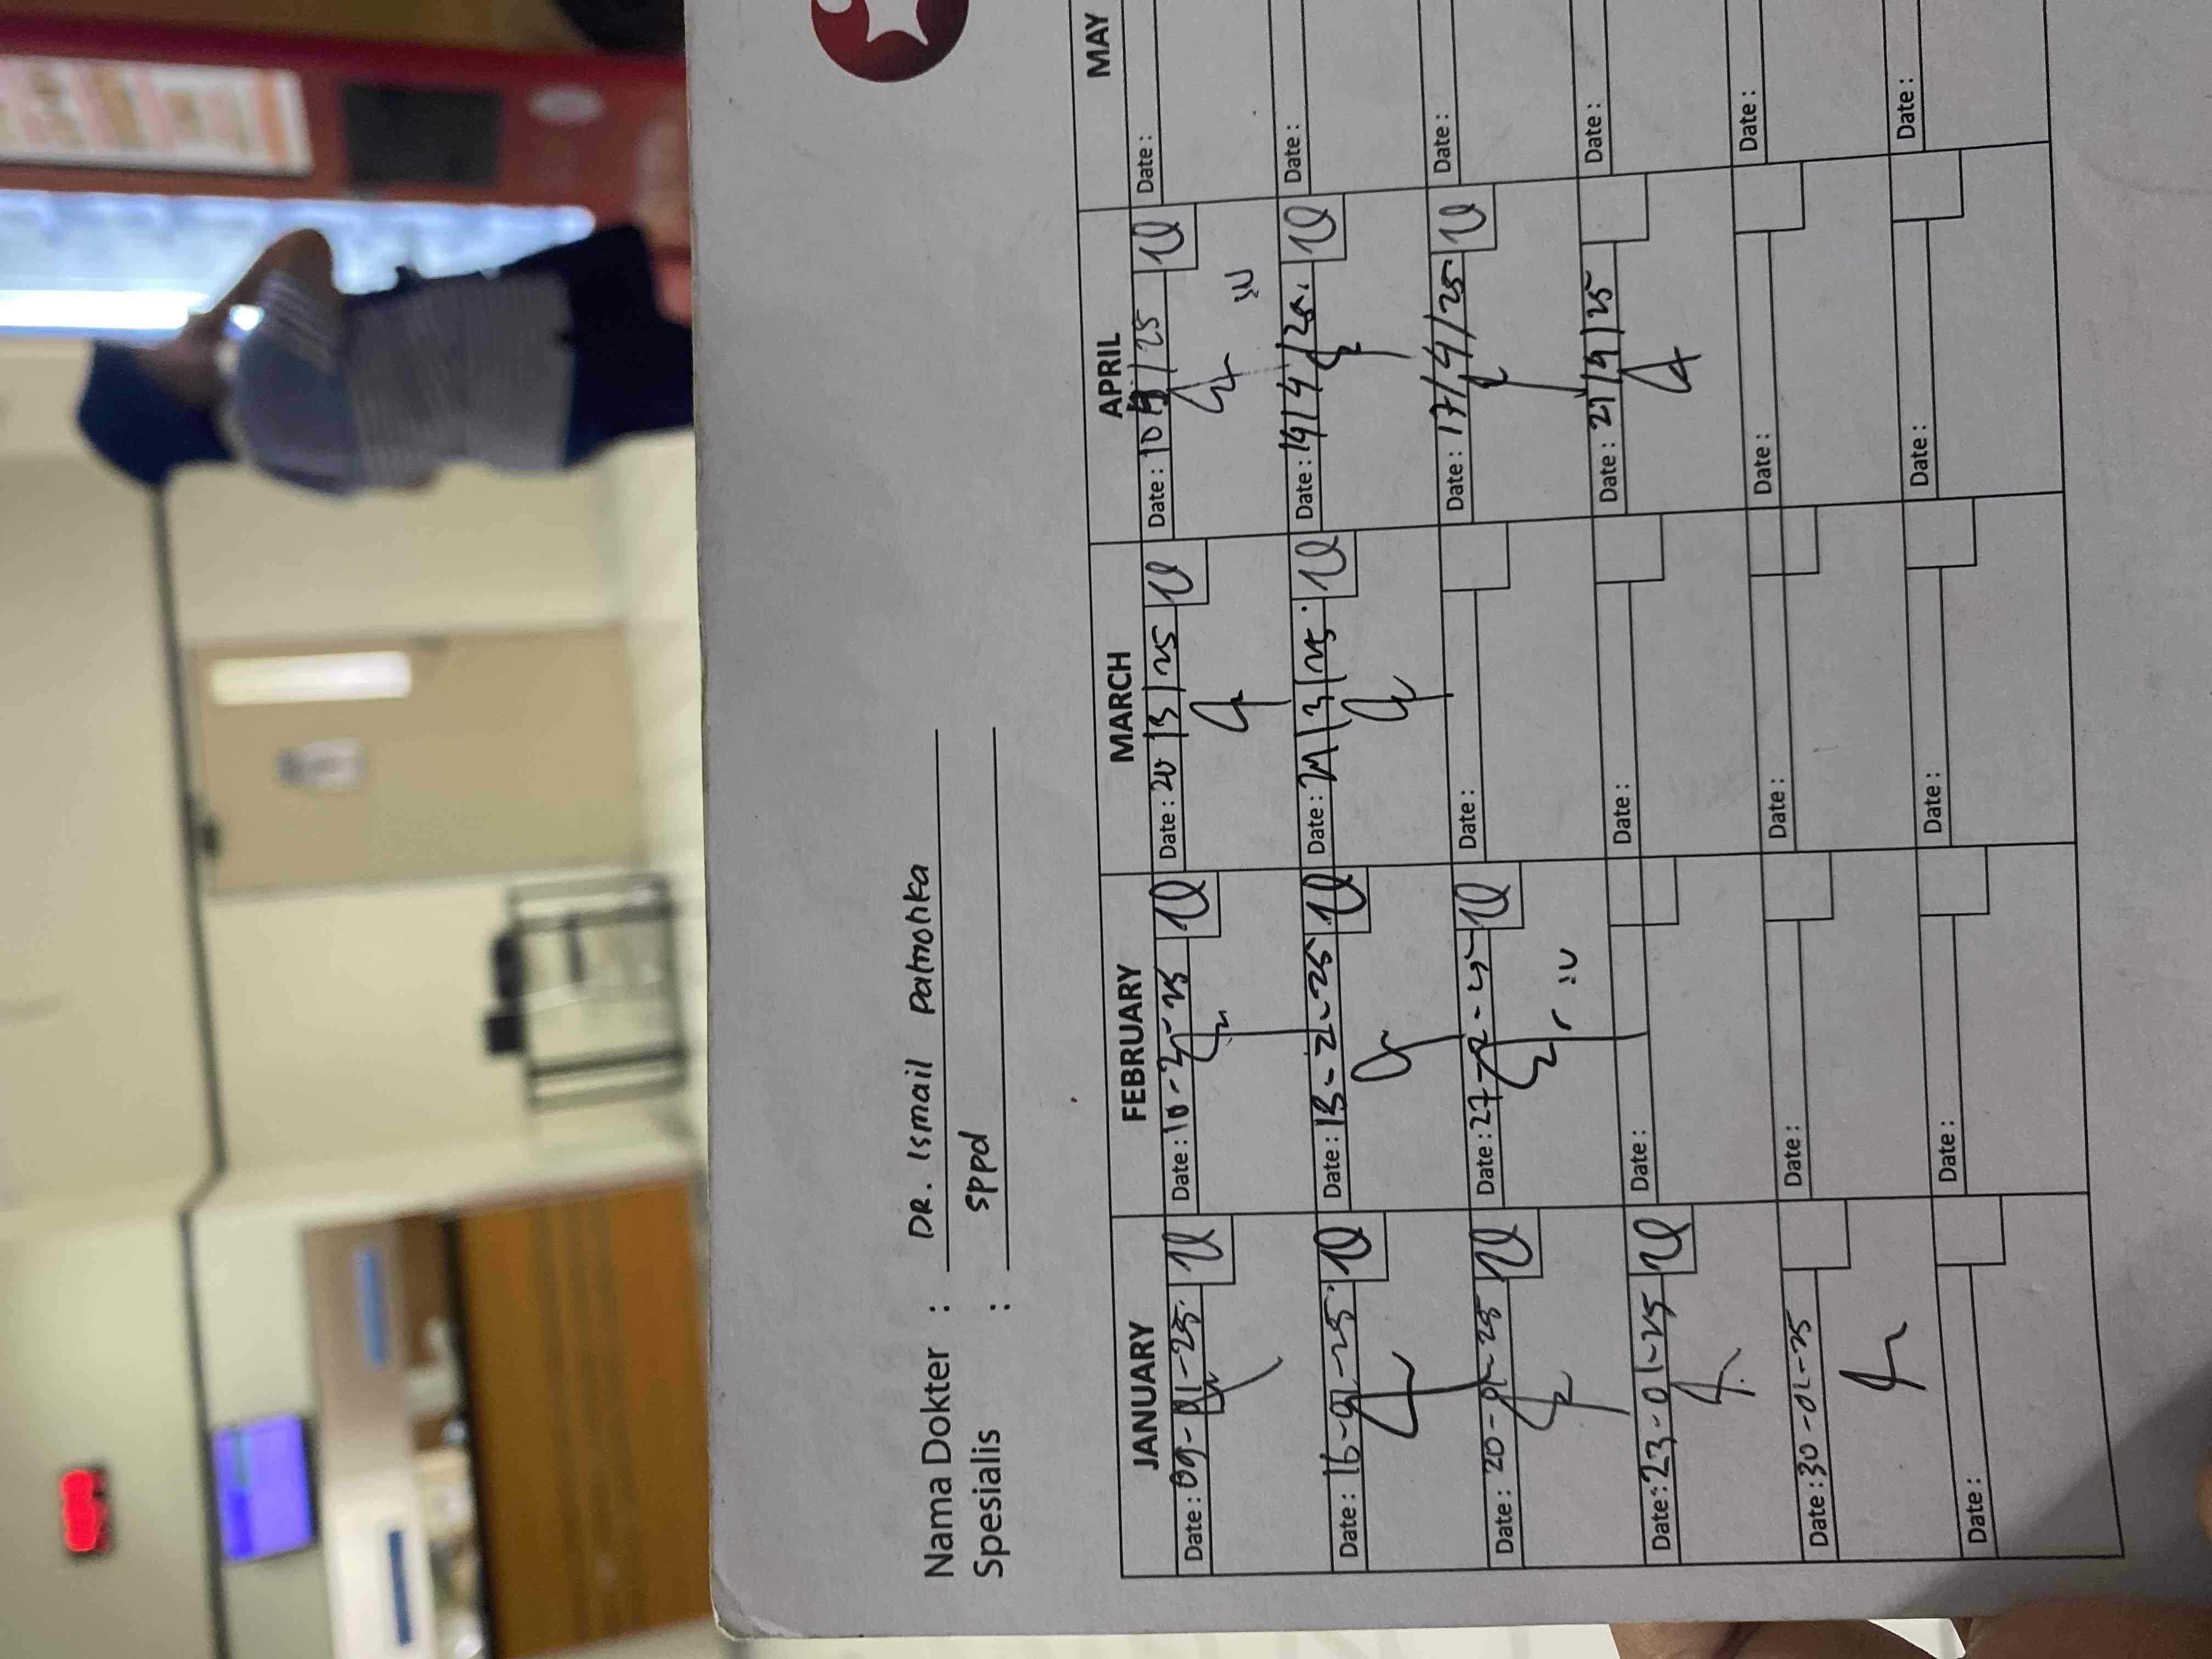 Nama Dokter : DR. Ismail Patmohka
Spesialis : SPPd
JANUARY FEBRUARY MARCH APRIL MAY
Date : 09-01-25 Date : 10-2-25 Date : 20/3/25 Date : 10/4/25 Date :
Date : 16-01-25 Date : 13-2-25 Date : /3/25 Date : 14/4/25 Date :
Date : 20-01-25 Date : 27-2-25 Date : Date : 17/4/25 Date :
Date : 23-01-25 Date : Date : Date : 21/4/25 Date :
Date : 30-01-25 Date : Date : Date : Date :
Date : Date : Date : Date : Date :